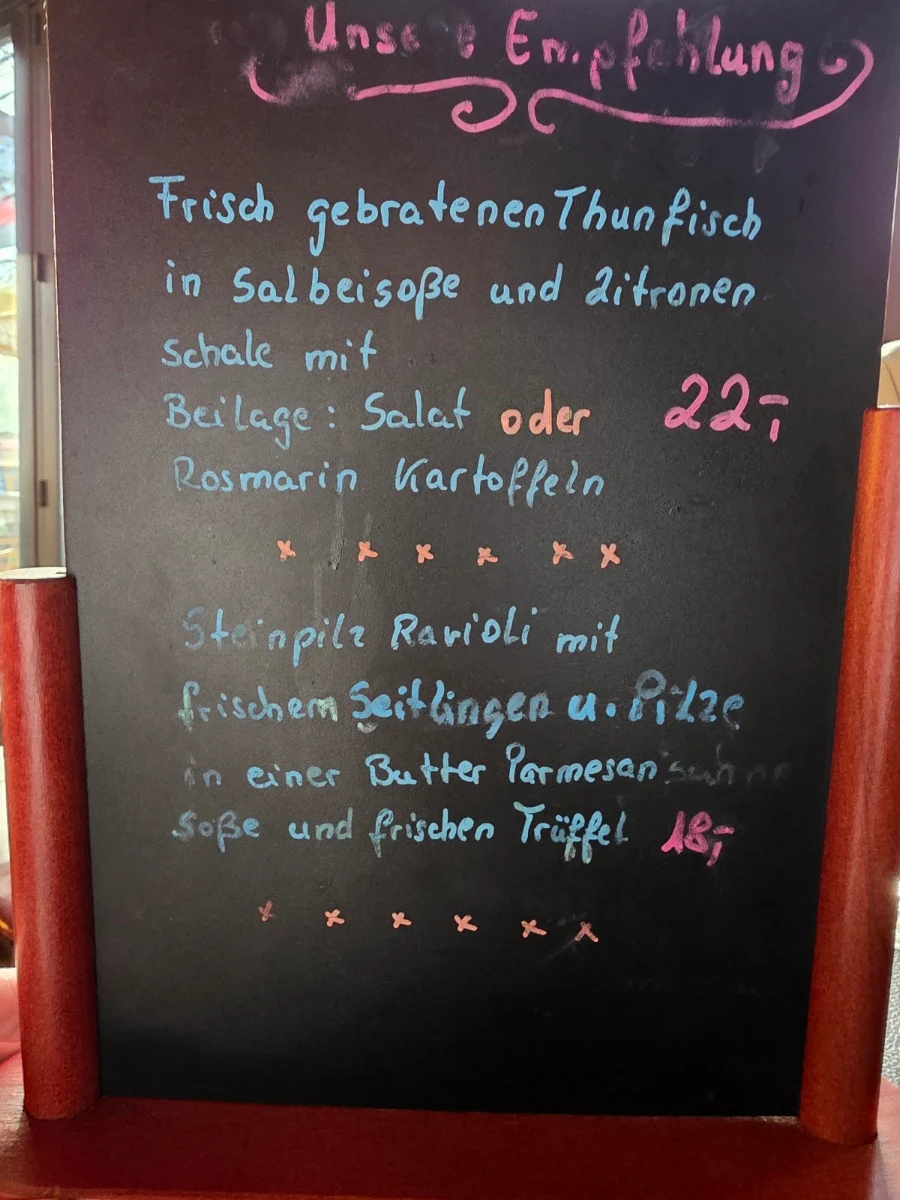 Unsere Empfehlung
Frisch gebratenen Thunfisch
in Salbeisoße und Zitronen
schale mit
Beilage: Salat oder 22,-
Rosmarin Kartoffeln
x x x x x x
Steinpilz Ravioli mit
frischem Seitlingen u. Pilze
in einer Butter Parmesan sahne
soße und frischen Trüffel 18,-
x x x x x x